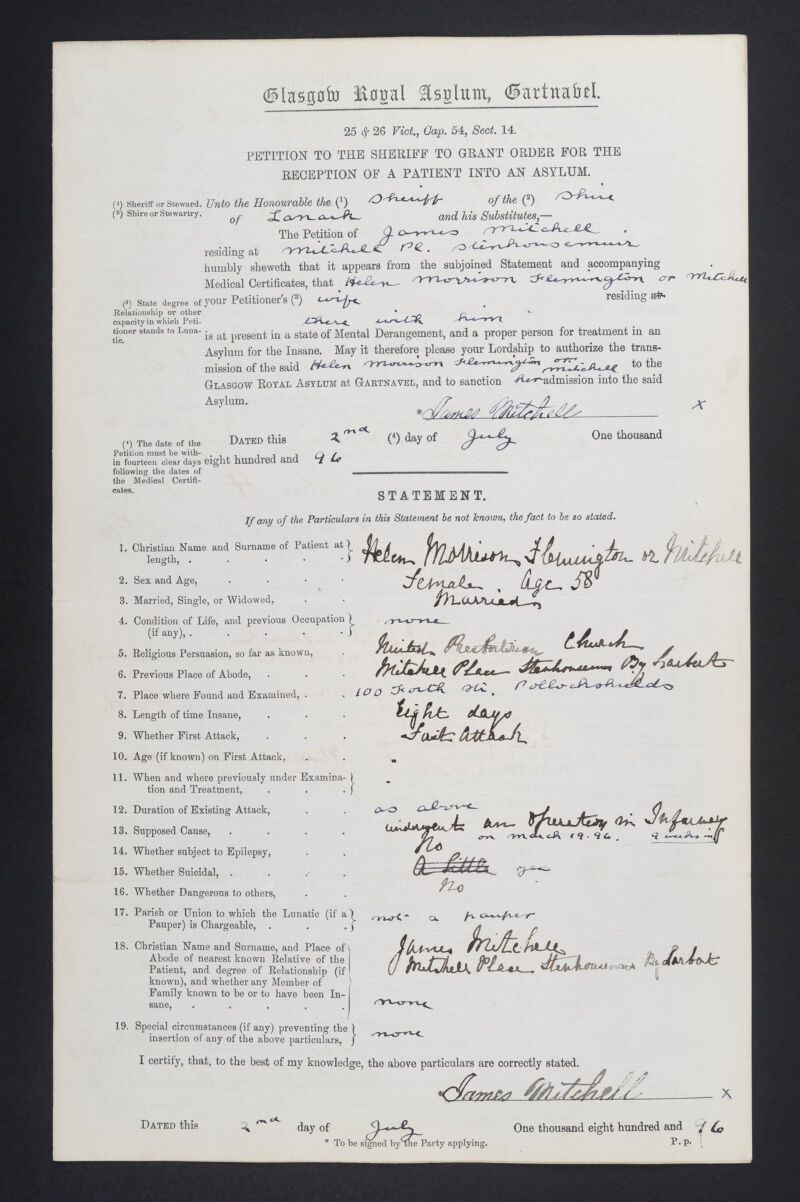 Glasgow Royal Asylum, Gartnavel.
25 & 26 Vict., Cap. 54, Sect. 14.
PETITION TO THE SHERIFF TO GRANT ORDER FOR THE
RECEPTION OF A PATIENT INTO AN ASYLUM.
(¹) Sheriff or Steward.
(²) Shire or Stewartry.
Unto the Honourable the (¹) Sheriff of the (²) Shire
of Lanark and his Substitutes,—
The Petition of James Mitchell
residing at Mitchell Pl. Stenhousemuir
humbly sheweth that it appears from the subjoined Statement and accompanying
Medical Certificates, that Helen Morrison Flemington or Mitchell
(³) State degree of Relationship or other capacity in which Petitioner stands to Lunatic.
your Petitioner's (³) wife residing at
there with him
is at present in a state of Mental Derangement, and a proper person for treatment in an
Asylum for the Insane. May it therefore please your Lordship to authorize the trans-
mission of the said Helen Morrison Flemington or Mitchell to the
GLASGOW ROYAL ASYLUM at GARTNAVEL, and to sanction her admission into the said
Asylum.
* James Mitchell x
(⁴) The date of the Petition must be within fourteen clear days following the dates of the Medical Certificates.
DATED this 2nd (⁴) day of July One thousand
eight hundred and 96
STATEMENT.
If any of the Particulars in this Statement be not known, the fact to be so stated.
1. Christian Name and Surname of Patient at length, . . . . . Helen Morrison Flemington or Mitchell
2. Sex and Age, . . . . Female Age 58
3. Married, Single, or Widowed, . . Married
4. Condition of Life, and previous Occupation (if any), . . . . . none
5. Religious Persuasion, so far as known, . United Presbiterien Church
6. Previous Place of Abode, . . . Mitchell Place Stenhousemuir By Larbert
7. Place where Found and Examined, . . 100 Forth St. Pollockshields
8. Length of time Insane, . . . Eight days
9. Whether First Attack, . . . First Attack
10. Age (if known) on First Attack, . . "
11. When and where previously under Examination and Treatment, . . . "
12. Duration of Existing Attack, . . as above
13. Supposed Cause, . . . . underwent an Operation in Infirmary
on March 19. 96. 9 weeks in
14. Whether subject to Epilepsy, . . No
15. Whether Suicidal, . . . . A little yes
16. Whether Dangerous to others, . . No
17. Parish or Union to which the Lunatic (if a Pauper) is Chargeable, . . . . not a pauper
18. Christian Name and Surname, and Place of Abode of nearest known Relative of the Patient, and degree of Relationship (if known), and whether any Member of Family known to be or to have been Insane, . . . . . James Mitchell
Mitchell Place Stenhousemuir By Larbert
none
19. Special circumstances (if any) preventing the insertion of any of the above particulars, none
I certify, that, to the best of my knowledge, the above particulars are correctly stated.
* James Mitchell x
DATED this 2nd day of July One thousand eight hundred and 96
* To be signed by the Party applying.
P.p.